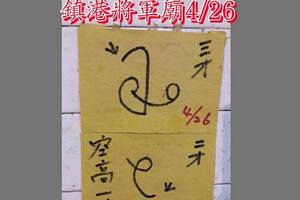 鎮港將軍廟4/26
三才
4/26
二才
空高一